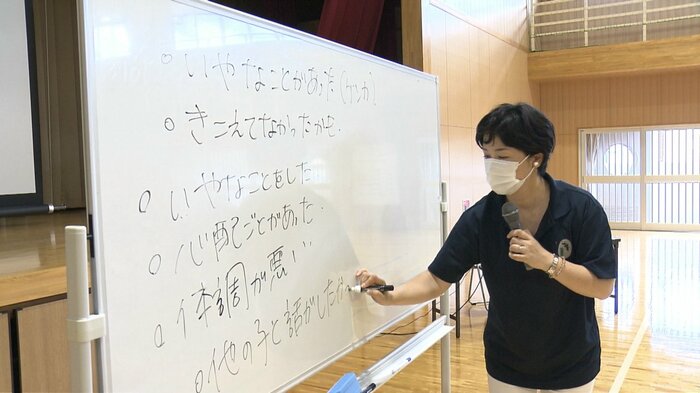 ○いやなことがあった(ケンカ)
○きこえてなかったかも.
○いやなことをした
○心配ごとがあった.
○体調が悪い
○他の子と話がしたかっ